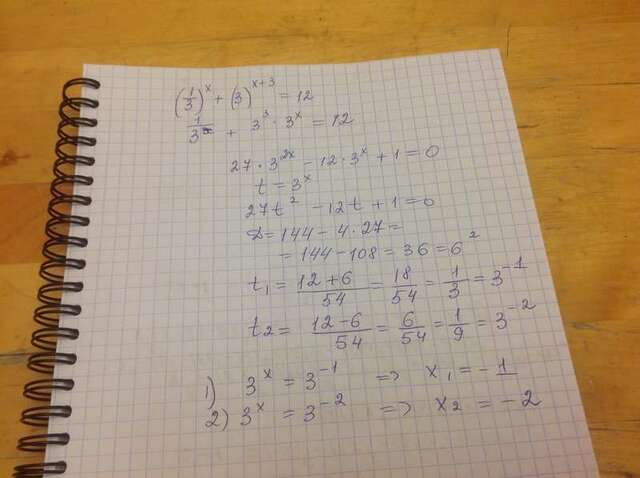 (1/3)^x + (3)^(x+3) = 12
1/3^x + 3^3 · 3^x = 12
27 · 3^(2x) - 12 · 3^x + 1 = 0
t = 3^x
27t^2 - 12t + 1 = 0
D = 144 - 4 · 27 =
= 144 - 108 = 36 = 6^2
t₁ = (12+6)/54 = 18/54 = 1/3 = 3^(-1)
t2 = (12-6)/54 = 6/54 = 1/9 = 3^(-2)
1) 3^x = 3^(-1) => x₁ = -1
2) 3^x = 3^(-2) => x₂ = -2